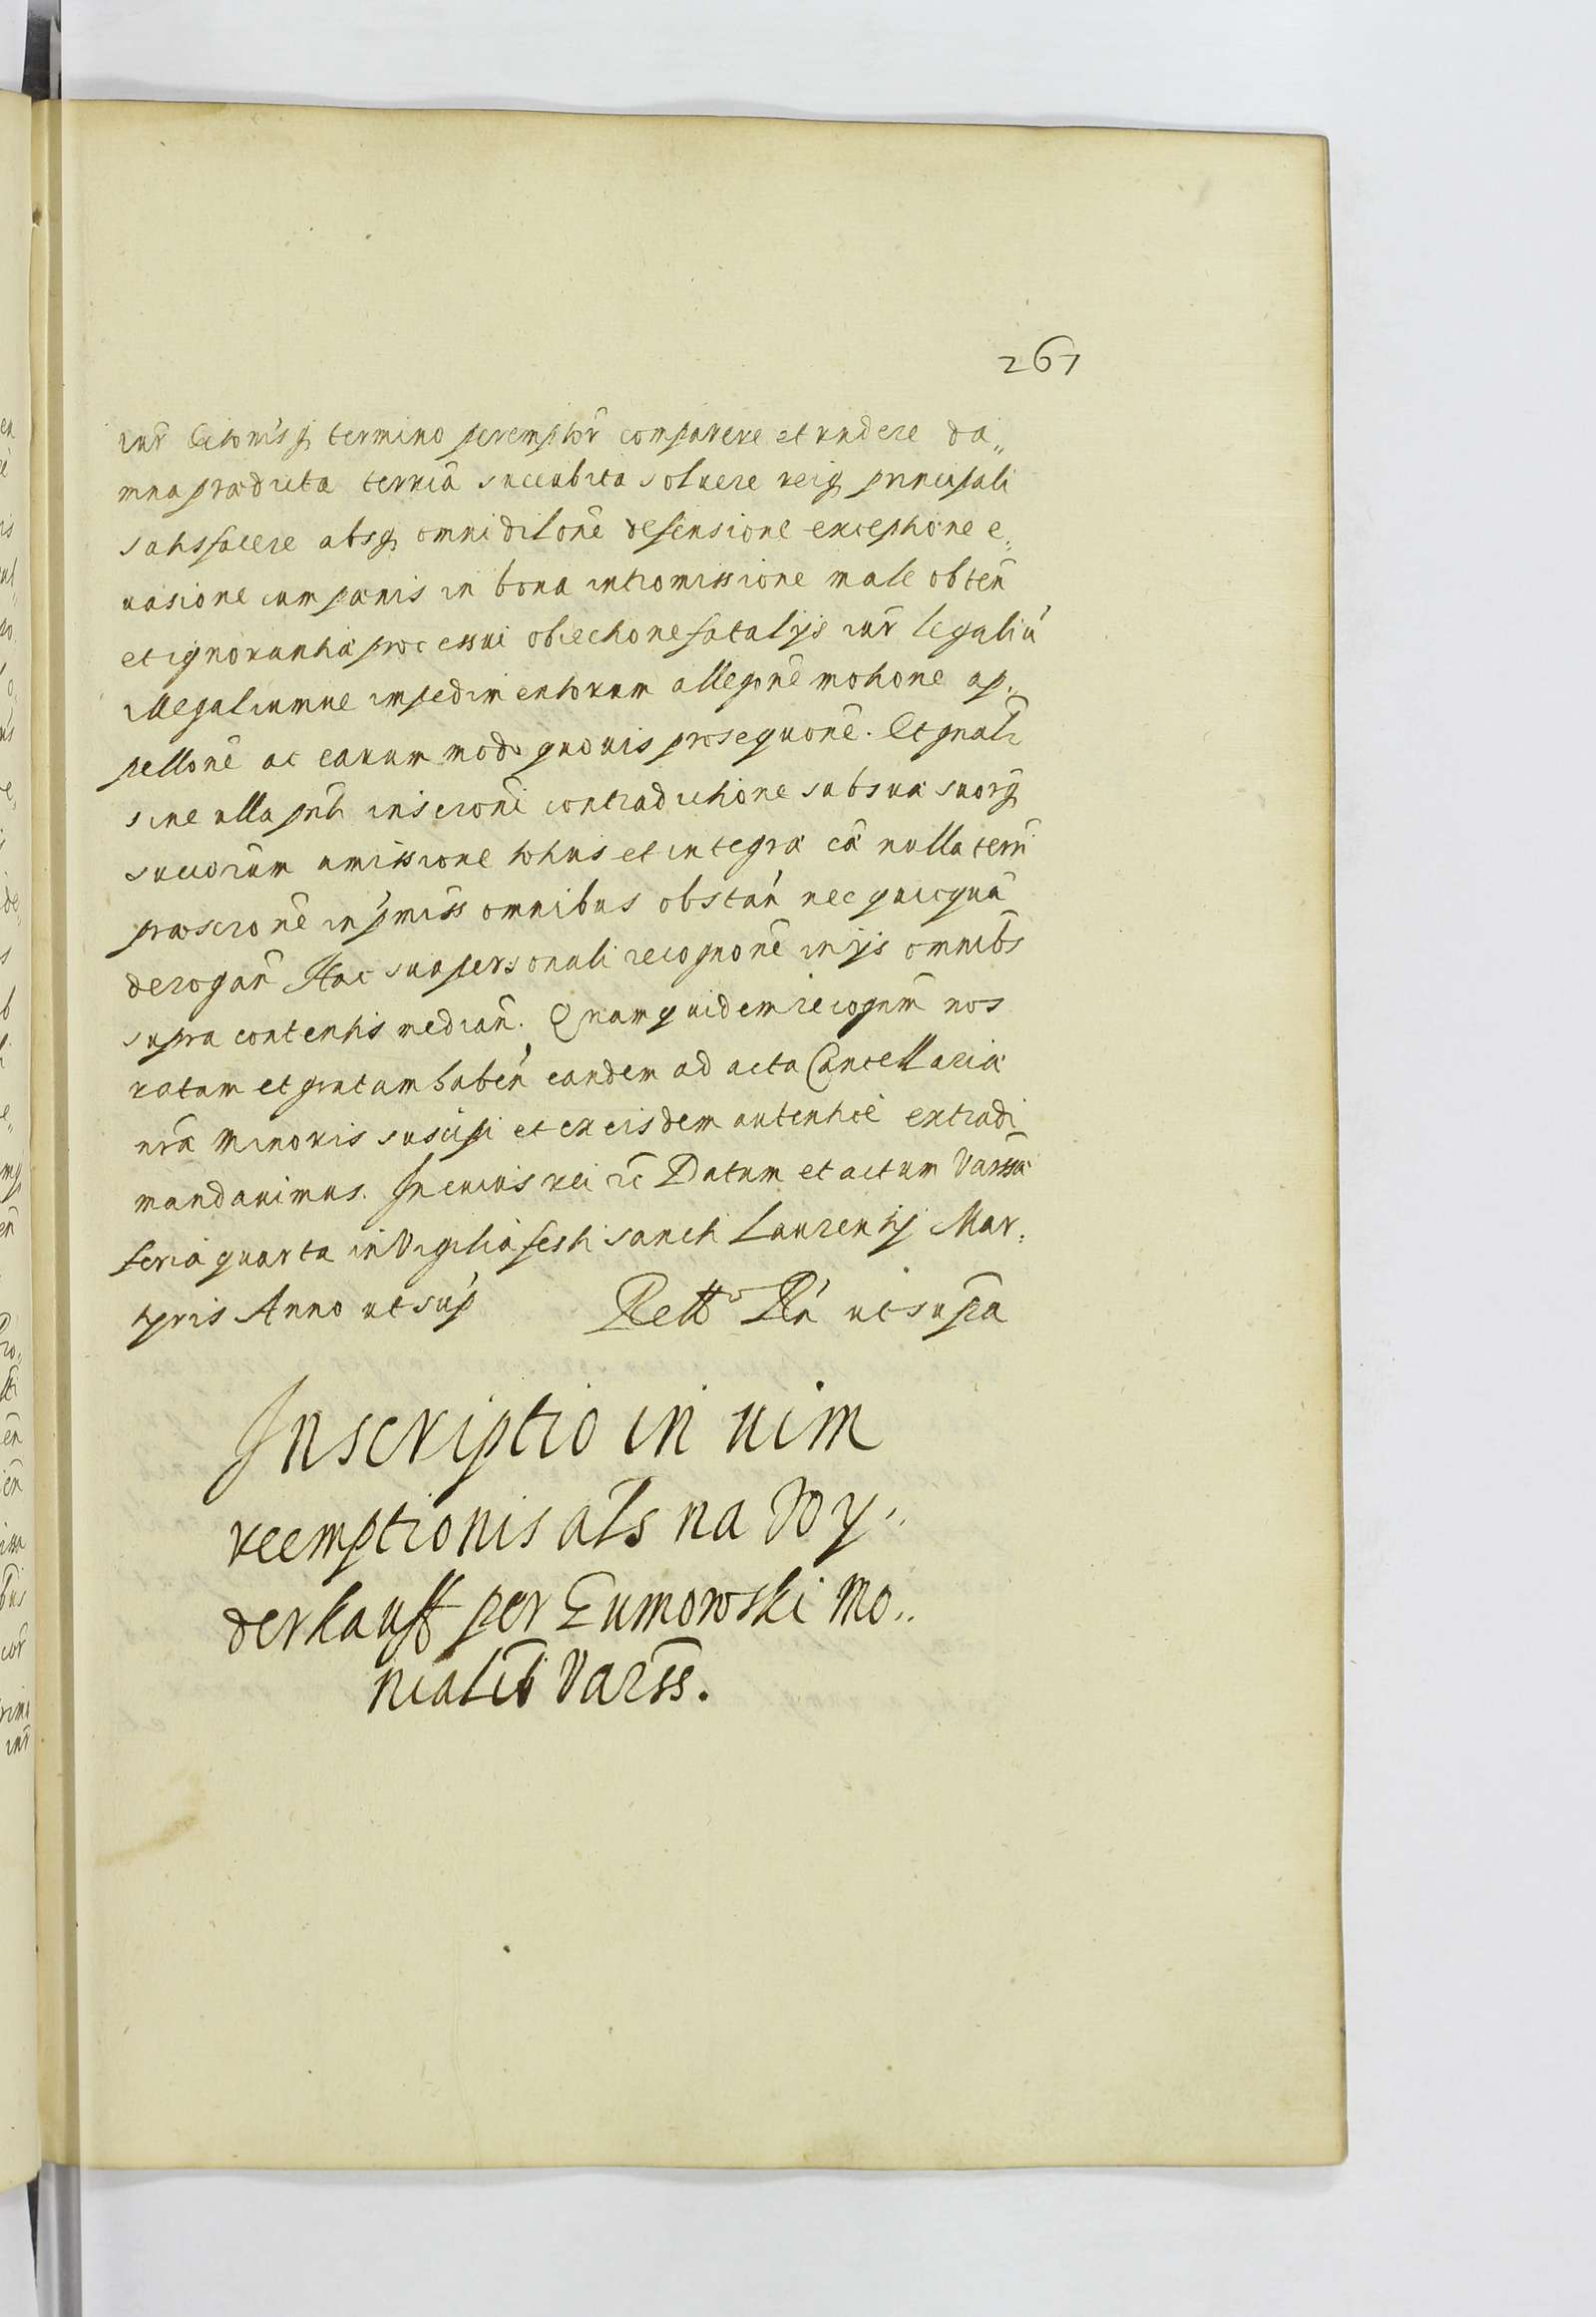 267
iur̃ citõnisq̃ termino peremptor̃ comparere et rñdere da„
mna prædicta terrrã succubita soluere reiq̃ principali
satisfacere absq̃ omni dilõne defensione exceptione e„
uasione cum pœnis in bona intromissione male obten̄
et ignorantia processui obiectione fatalijs iur̃ legaliũ
illegaliumue impedimentorum allegõne motione ap„
pellõne ac earum modo quouis prosequõne. Et gñali
sine ulla pñti inscrõni contradictione sub sua suorq̃
succorum amissione totius et integræ cã nulla terrī
præscrõne in p̃miss omnibus obstan̄ nec quicquã
derogan̄ Hac sua personali recognõne in ijs omnibs
supra contentis median̄. Quam quidem recognm̄ nos
ratam et gratam haben̄ eandem ad acta Cancellariæ
nr̃æ Minoris suscipi et ex eisdem autenticē extradi
mandauimus. In cuius rei rc̃ Datum et actum Varssæ
feria quarta in Vigilia festi sancti Laurentij Mar„
tyris Anno ut sup̃ Rell° Rñ ut supra
Inscriptio in uim
reemptionis als na Wy„
derkauff per Zumowski Mo„
nialib̃ Varss̃.